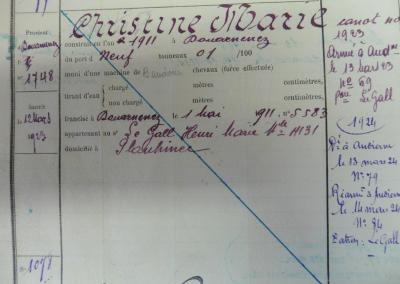 17
Christine Marie
Provient
Douarnenez
f°
1748
12 Mars
1923
1071
construit en l'an 1911 à Douarnenez
du port de Neuf tonneaux 01 /100
muni d'une machine de chevaux (force effectuée)
tirant d'eau { chargé mètres centimètres,
non chargé mètres centimètres,
francisé à Douarnenez le 1 Mai 1911 n° 5583
appartenant au n° Le Gall Henri Marie 14131
domicilié à Plouhinec
canot no
1923
Armé à Aud
le 13 mars 23
No 69
Le Gall
1924
Dé à Audierne
le 13 mars 24
No 79
Réarmé à Audierne
le 14 mars 24
No 84
Patron: Le Gall